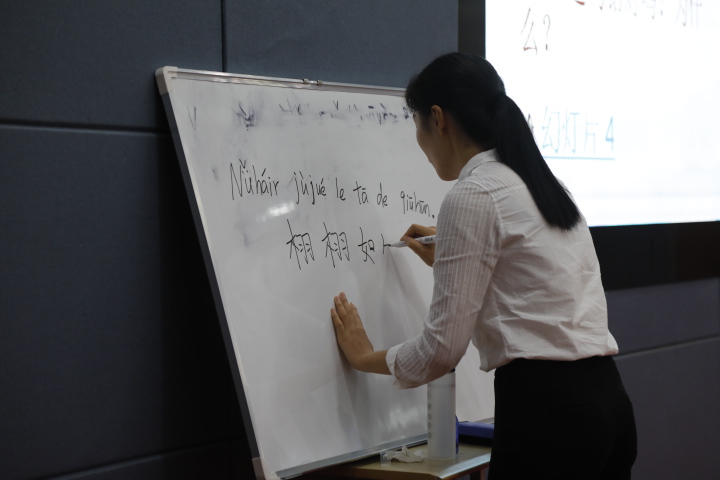 Nǚháir jùjué le tā de qiūhūn.
栩栩如
么?
幻灯片 4